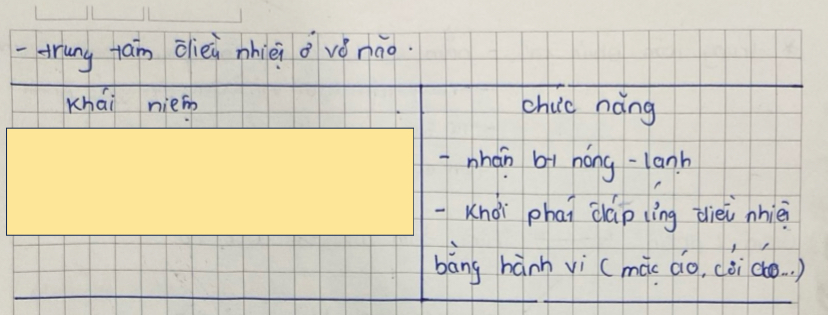 - trung tâm điều nhiệt ở vỏ não.
Khái niệm
chức năng
- nhận b+ nóng - lạnh
- Khởi phát đáp ứng điều nhiệt
bằng hành vi (mặc áo, cởi áo...)